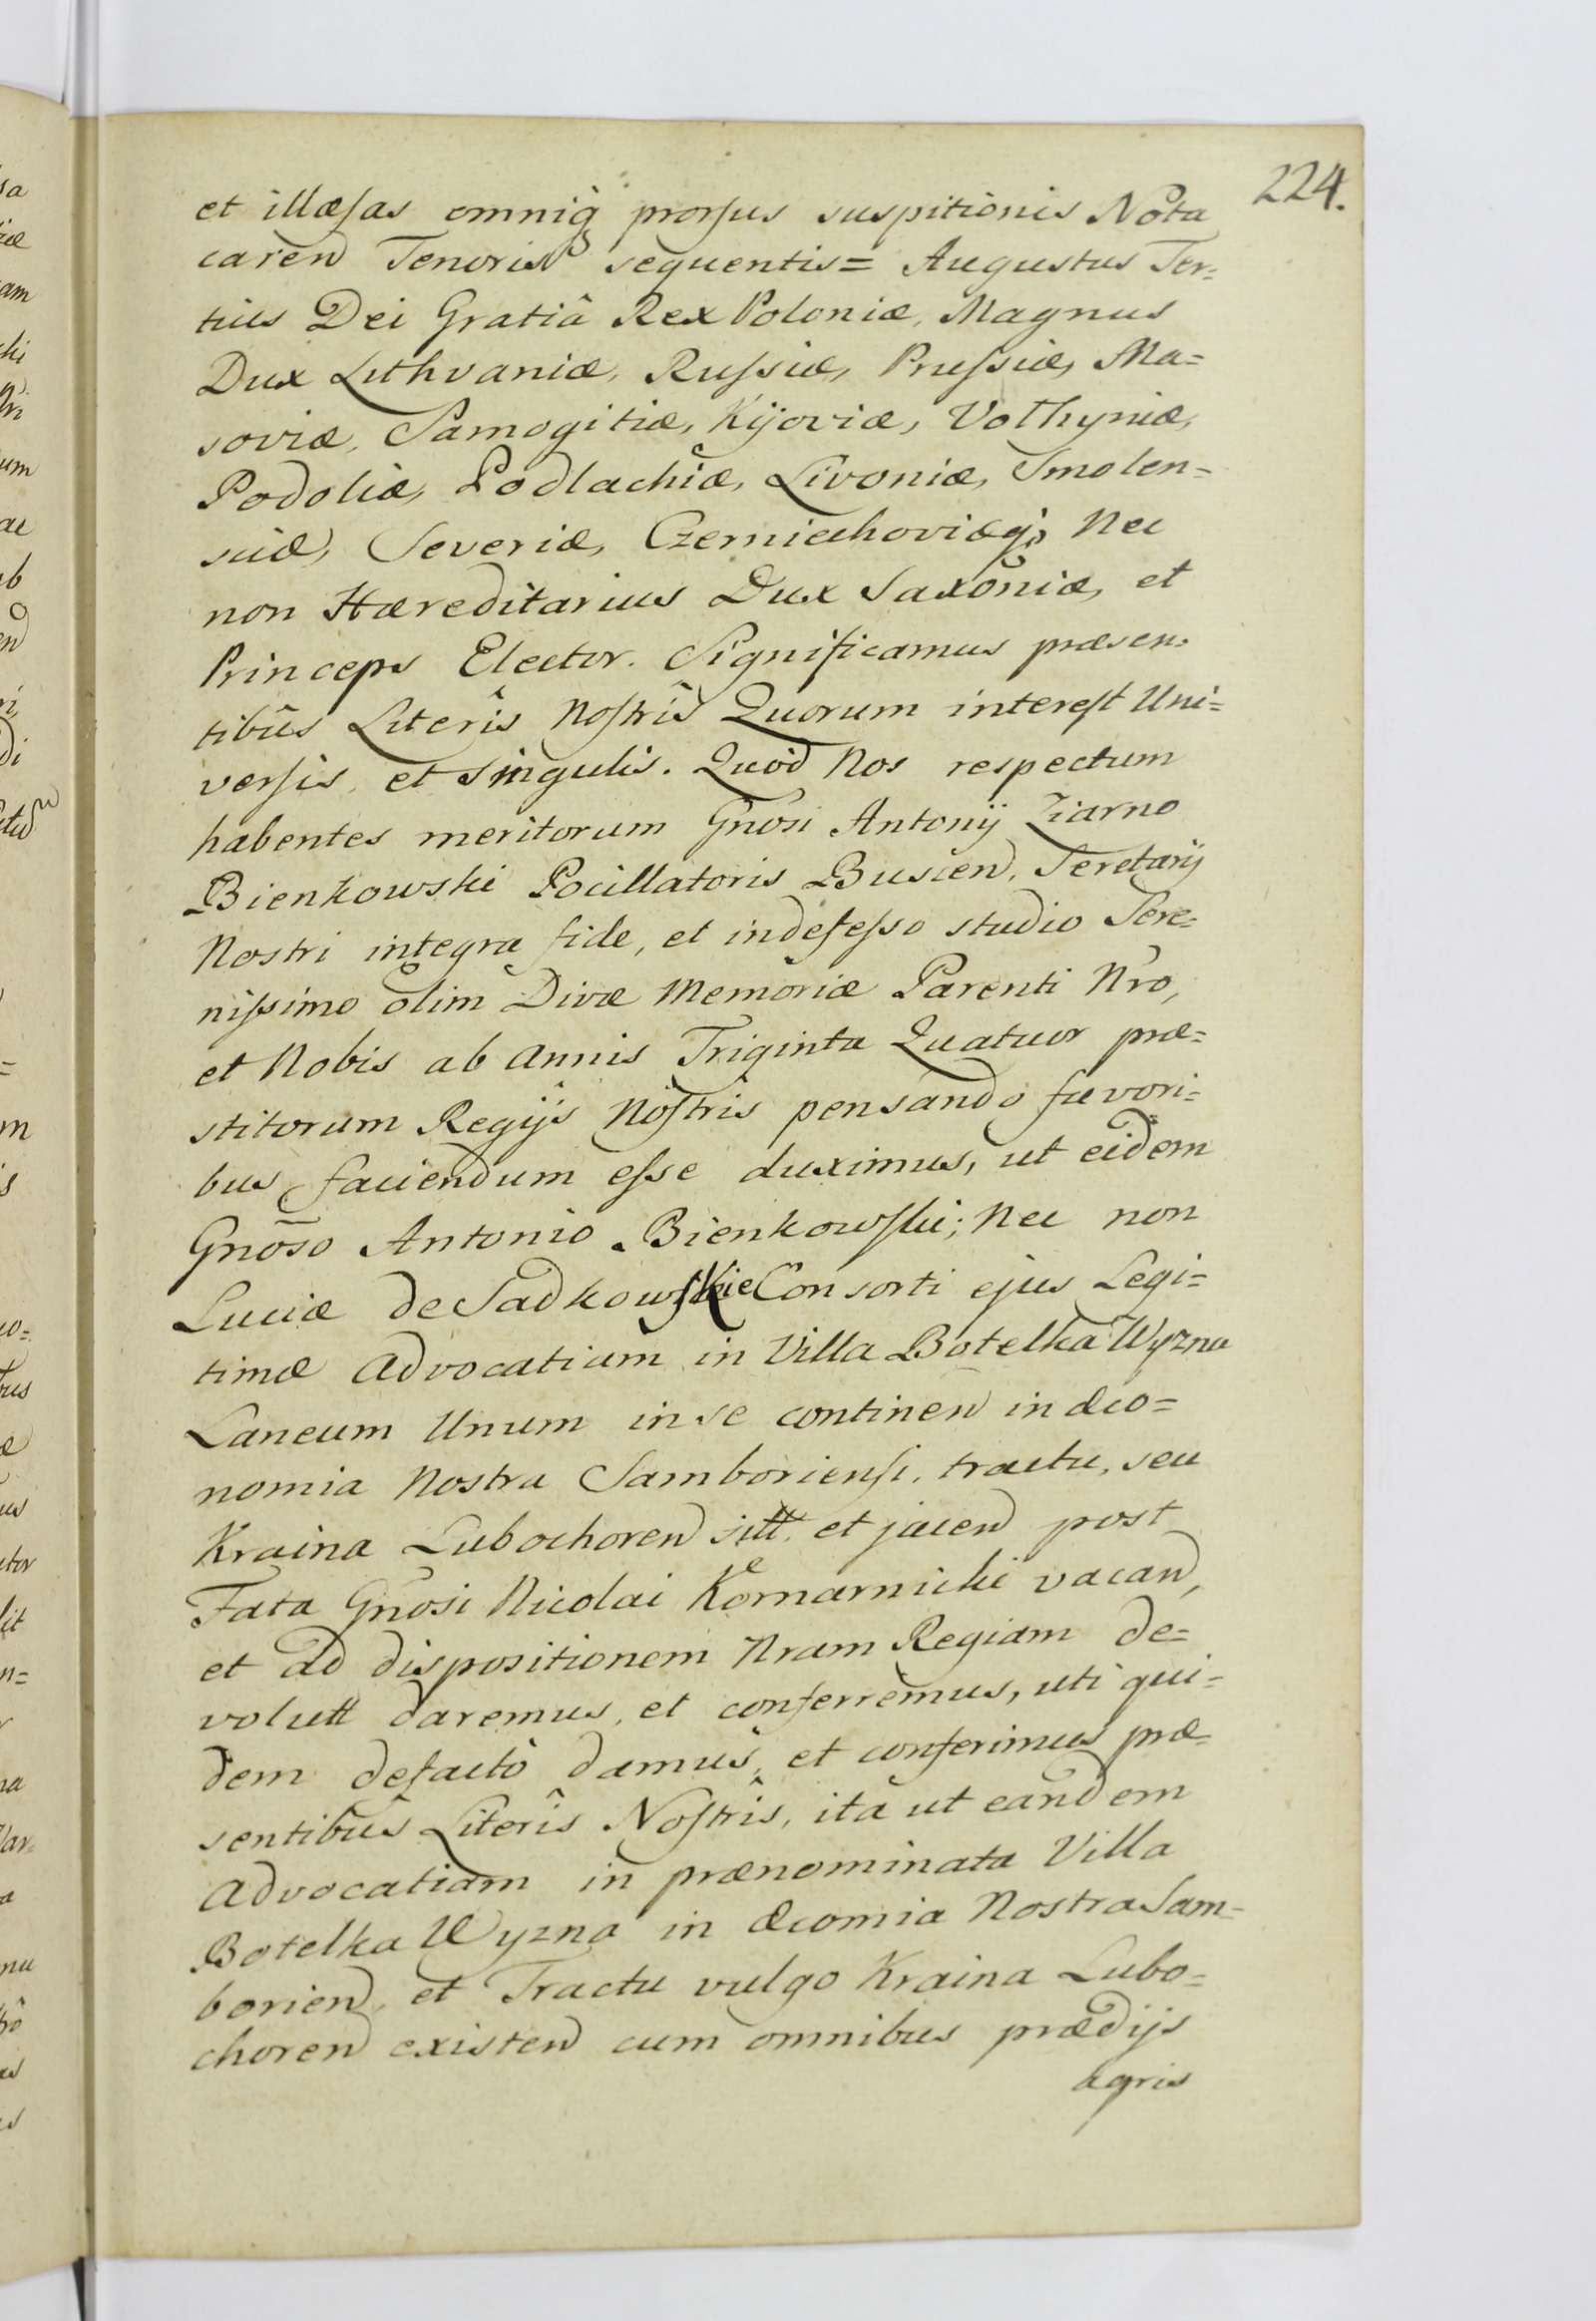 224.
et illæsas omniq prorsus suspitionis Nota
caren Tenoris sequentis= Augustus Ter=
tius Dei Gratiâ Rex Poloniæ, Magnus
Dux Lithvaniæ, Russiæ, Prussiæ, Ma=
soviæ, Samogitiæ, Kijoviæ, Volhyniæ,
Podoliæ, Podlachiæ, Livoniæ, Smolen=
sciæ, Severiæ, Czerniechoviæq; Nec
non Hæreditarius Dux Saxoniæ, et
Princeps Elector. Significamus præsen=
tibûs Literîs Nostrîs Quorum interest Uni=
versis, et singulis. Quòd Nos respectum
habentes meritorum Gnosi Antonij Ziarno
Bienkowski Pocillatoris Buscen, Seretarij
Nostri integra fide, et indefesso studio Sere=
nissimo olim Divæ Memoriæ Parenti Nro,
et Nobis ab Annis Triginta Quatuor præ=
stitorum Regijs Nostrîs pensando favori=
bus faciendum esse duximus, ut eidem
Gnõso Antonio Bienkowski; Nec non
Luciæ de Sadkowskie Consorti ejus Legi=
timæ Advocatiam in Villa Botelka Wyzna
Laneum Unum in se continen in Æco=
nomia Nostra Samboriensi, tractu, seu
Kraina Lubochoren sitt. et jacen post
Fata Gnosi Nicolai Komarnicki vacan,
et ad dispositionem Nram Regiam de=
volutt daremus, et conferremus, uti qui=
dem defactò damus, et conferimus præ=
sentibûs Literîs Nostrîs, ità ut eandem
Advocatiam in prænominata Villa
Botelka Wyzna in Æcomia Nostra Sam=
borien, et Tractu vulgo Kraina Lubo=
choren existen cum omnibus prædijs
agris